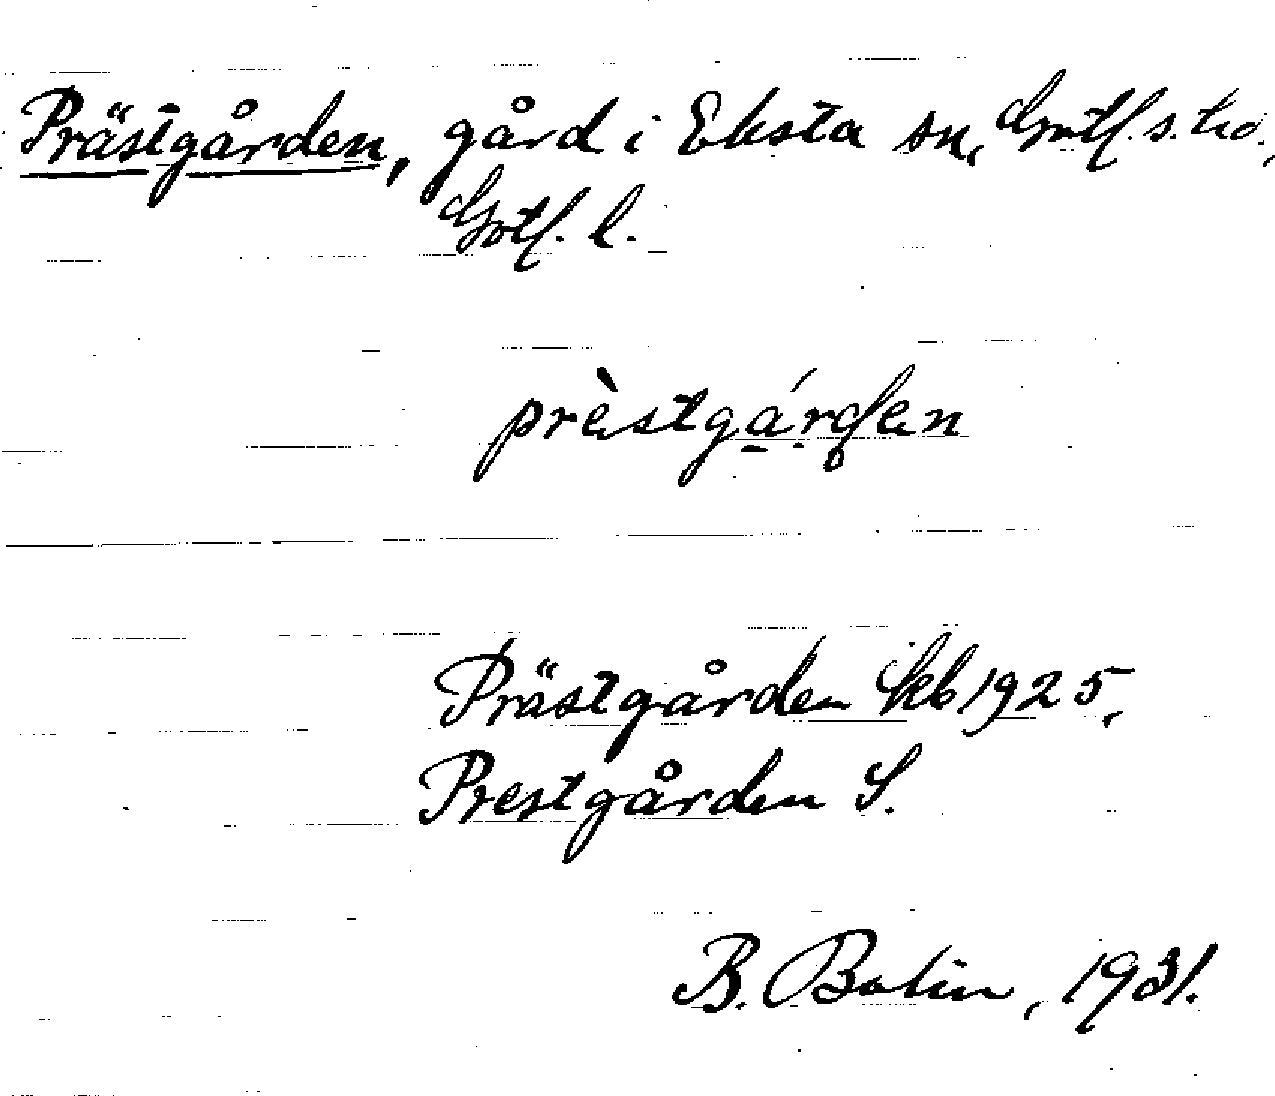 Prästgården, gård i Eksta sn, Gotl. s. hd.,
Gotl. l.
prèstgá̱rden
Prästgården Skb 1925,
Prestgården S.
B. Bolin, 1931.